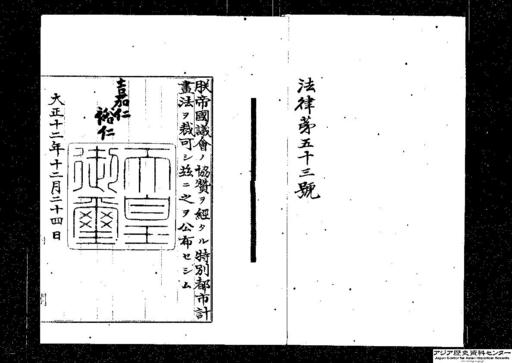 法律第五十三號
朕帝國議會ノ協贊ヲ經タル特別都市計
畫法ヲ裁可シ茲ニ之ヲ公布セシム
嘉仁
裕仁
天皇
御璽
大正十二年十二月二十四日
アジア歴史資料センター
Japan Center for Asian Historical Records